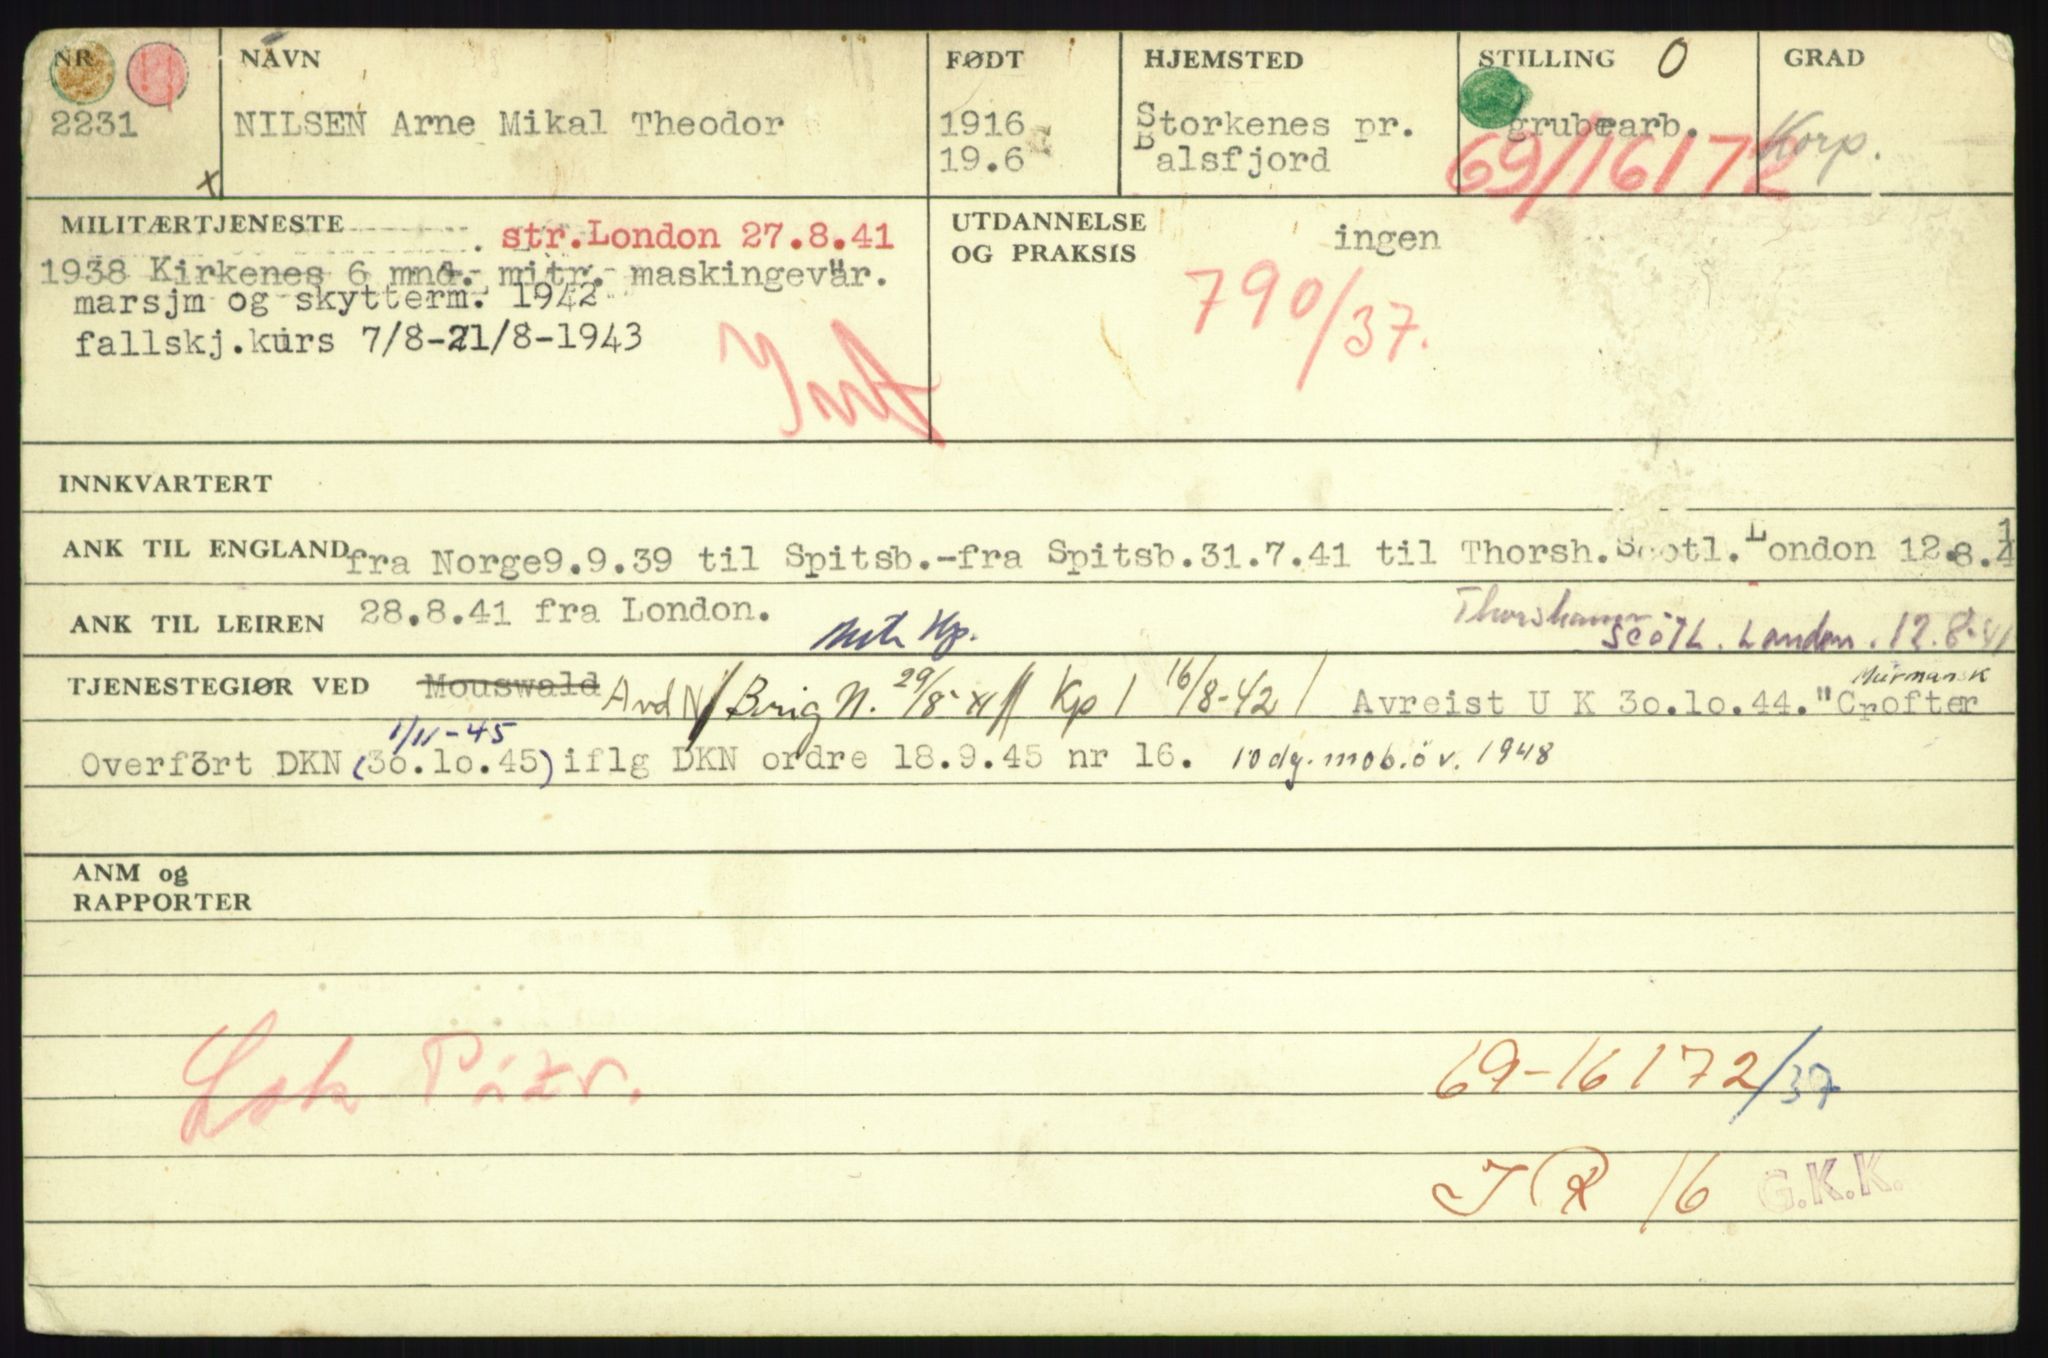 NR NAVN FØDT HJEMSTED STILLING O GRAD
2231 NILSEN Arne Mikal Theodor 1916 Storkenes pr. grubearb. Korp.
19.6 Balsfjord 69/16172
x
MILITÆRTJENESTE . str.London 27.8.41
1938 Kirkenes 6 mnd. mitr. maskingevär.
marsjm og skytterm. 1942
fallskj.kurs 7/8-21/8-1943
Inf
UTDANNELSE
OG PRAKSIS ingen
790/37.
INNKVARTERT
ANK TIL ENGLAND fra Norge9.9.39 til Spitsb.-fra Spitsb.31.7.41 til Thorsh.Scotl.London 12.8.41
ANK TIL LEIREN 28.8.41 fra London. Kp. Thorshavn
Scotl. London. 12.8.41
TJENESTEGIØR VED Mouswald Avd N/ Brig N. 29/8-41// Kp 1 16/8-42/ Avreist U K 30.10.44."Crofter
Murmansk
1/11-45
Overfört DKN (30.10.45) iflg DKN ordre 18.9.45 nr 16. 10 dg. mob.öv. 1948
ANM og
RAPPORTER
69-16172/37
IR 16 G.K.K.